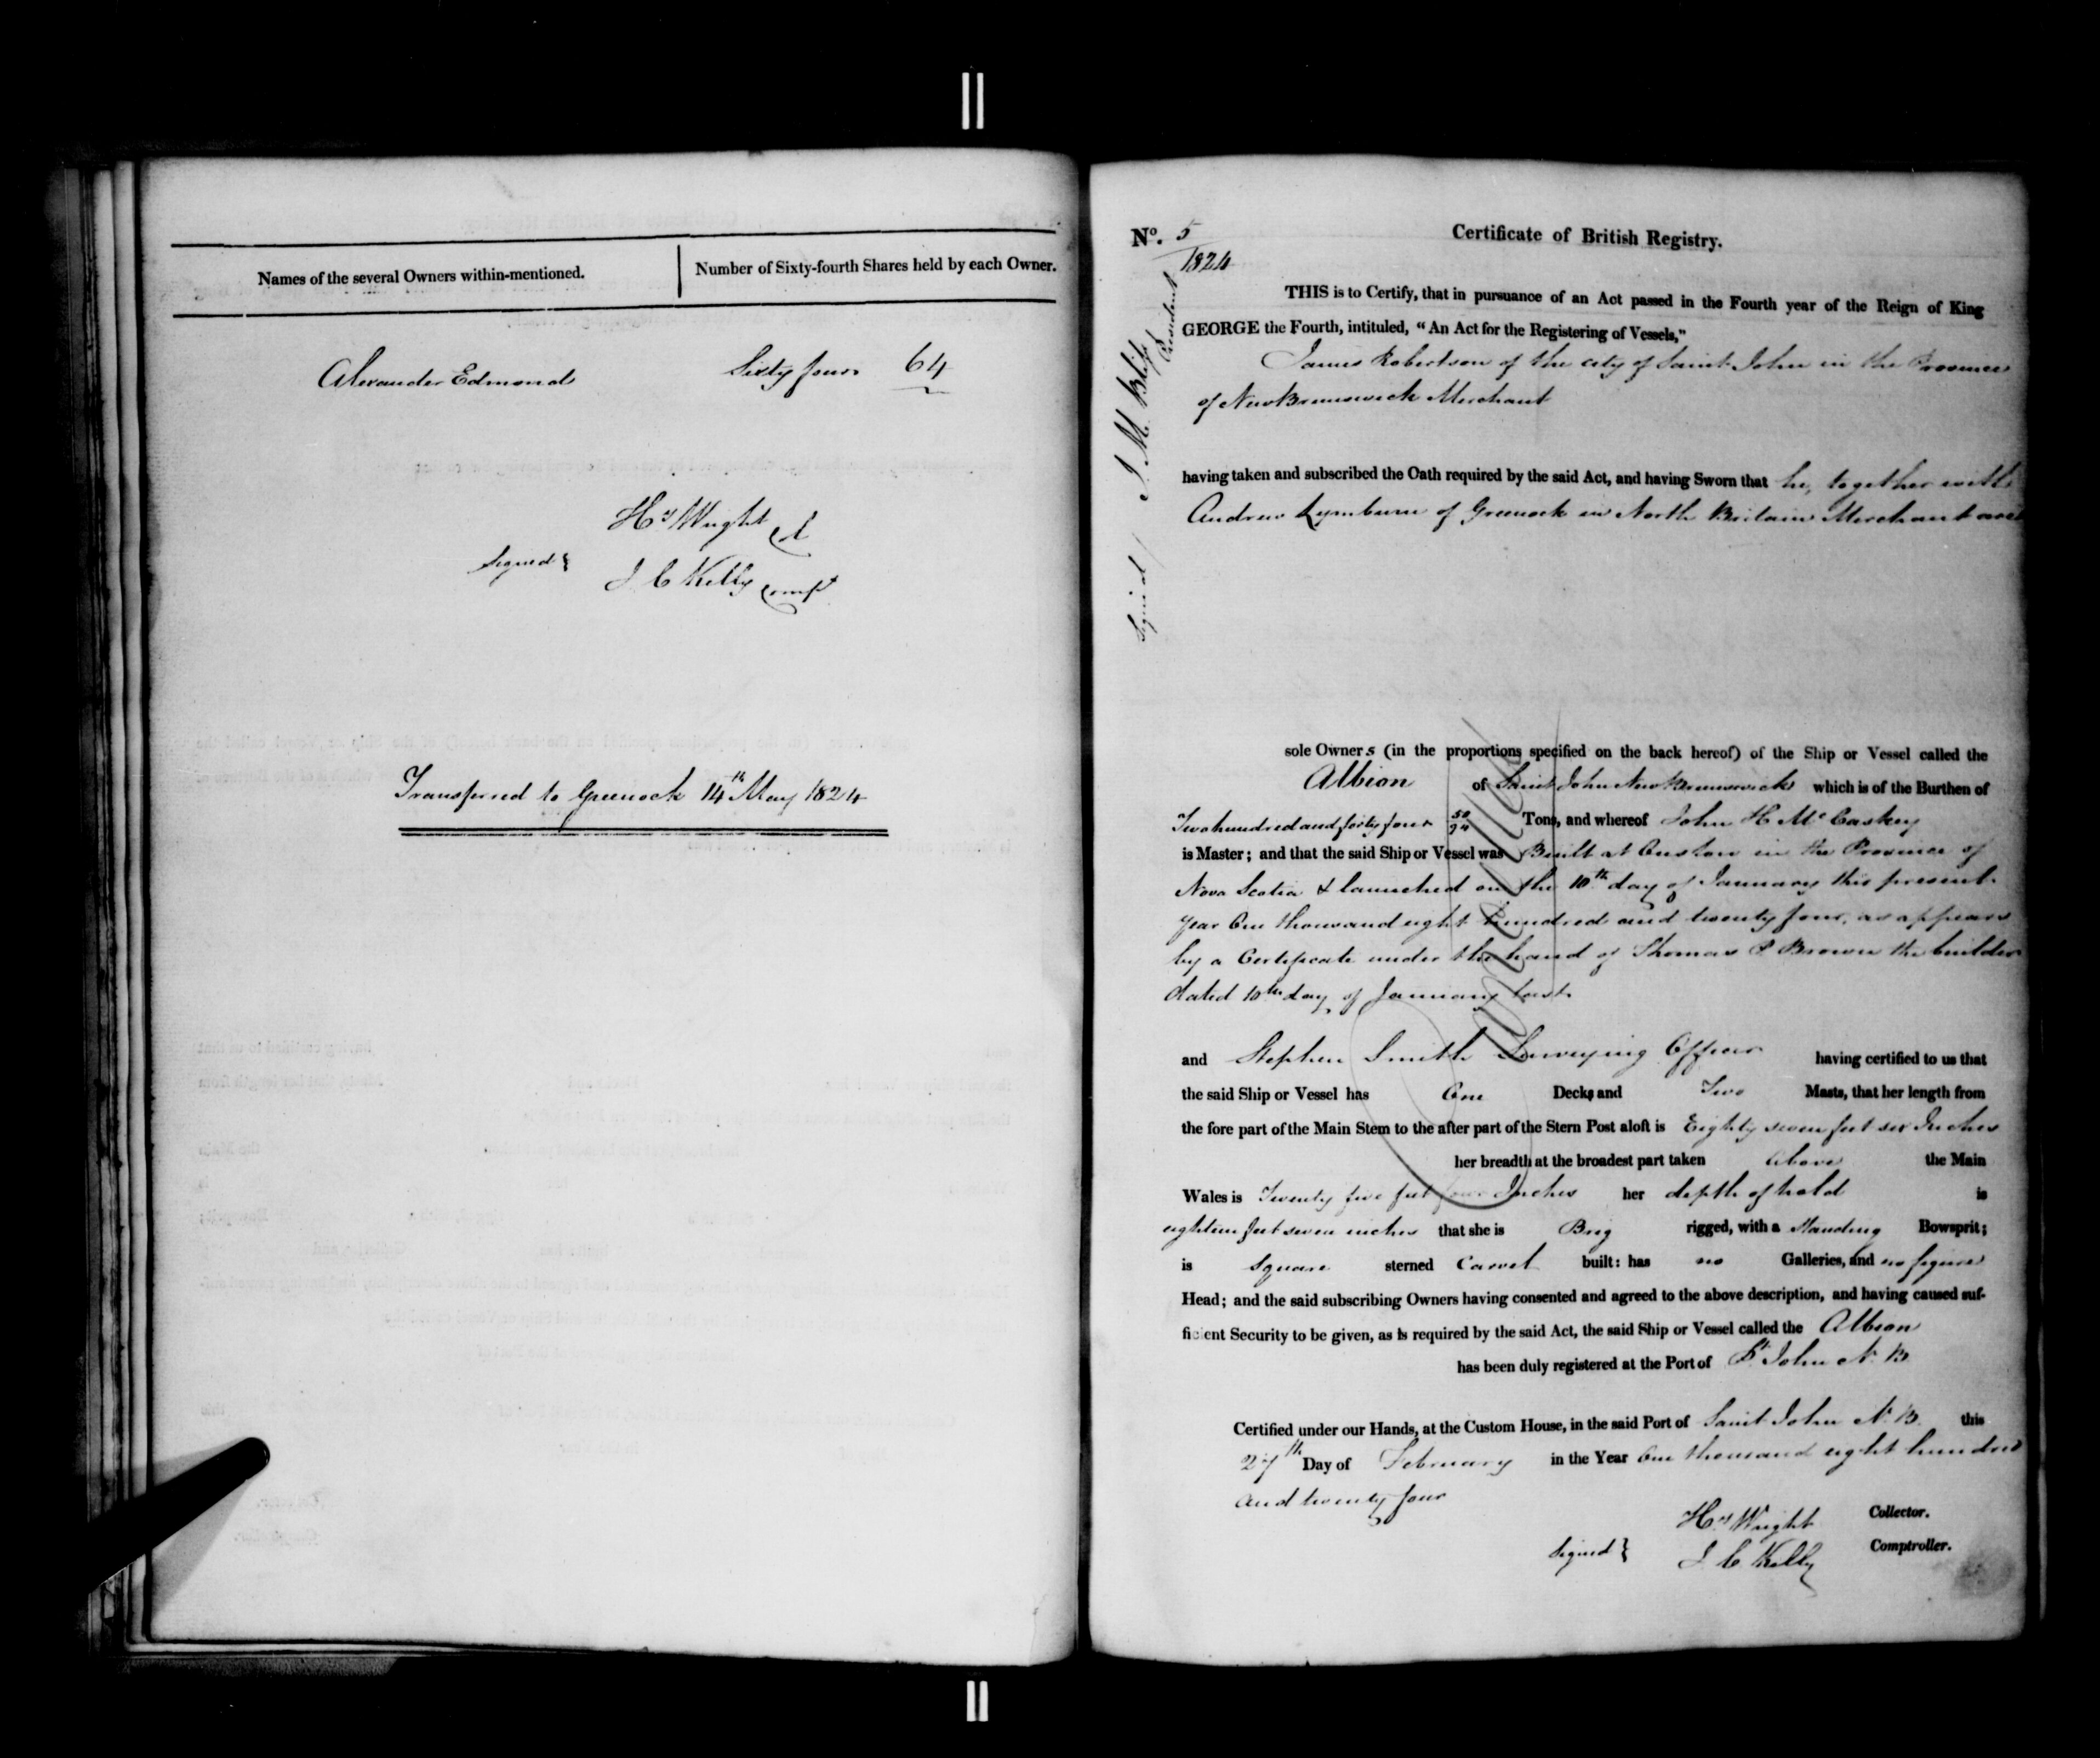 Names of the several Owners within-mentioned.
Number of Sixty-fourth Shares held by each Owner.
Alexander Edmonds Sixty four 64
Signed } Hy Wright Col
J C Kelly Compt
Transferred to Greenock 14th May 1824
No. 5
1824
Certificate of British Registry.
Signed / J. M. Bliss President
THIS is to Certify, that in pursuance of an Act passed in the Fourth year of the Reign of King
GEORGE the Fourth, intituled, "An Act for the Registering of Vessels,"
James Robertson of the city of Saint John in the Province
of New Brunswick Merchant
having taken and subscribed the Oath required by the said Act, and having Sworn that he, together with
Andrew Lymburn of Greenock in North Britain Merchant are
sole Owners (in the proportions specified on the back hereof) of the Ship or Vessel called the
Albion of Saint John New Brunswick which is of the Burthen of
Two hundred and forty four 50/94 Tons, and whereof John H McCaskey
is Master; and that the said Ship or Vessel was Built at in the Province of
Nova Scotia & launched on the 10th day of January this present
year One thousand eight hundred and twenty four, as appears
by a Certificate under the hand of Thomas Brown the builder
dated 10th day of January last
Cancelled
and Stephen Smith Surveying Officer having certified to us that
the said Ship or Vessel has One Decks and Two Masts, that her length from
the fore part of the Main Stem to the after part of the Stern Post aloft is Eighty seven feet six Inches
her breadth at the broadest part taken above the Main
Wales is Twenty five feet four Inches her depth of hold is
eighteen feet seven inches that she is Brig rigged, with a standing Bowsprit;
is Square sterned Carvel built: has no Galleries, and no figure
Head; and the said subscribing Owners having consented and agreed to the above description, and having caused suf-
ficient Security to be given, as is required by the said Act, the said Ship or Vessel called the Albion
has been duly registered at the Port of St John N. B
Certified under our Hands, at the Custom House, in the said Port of Saint John N. B. this
27th Day of February in the Year One thousand eight hundred
and twenty four
Hy Wright Collector.
Signed } J. C Kelly Comptroller.